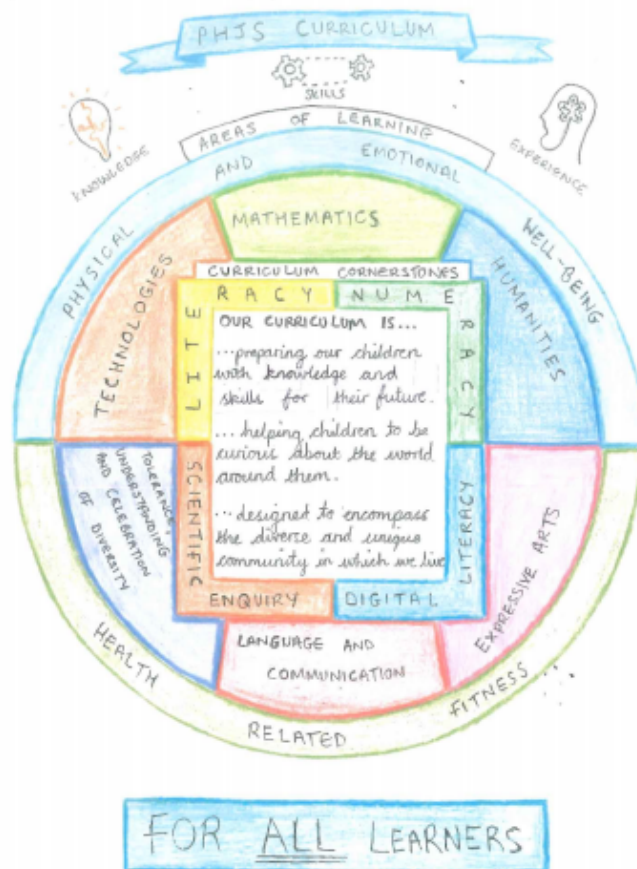 PHJS CURRICULUM
SKILLS
KNOWLEDGE
EXPERIENCE
AREAS OF LEARNING
PHYSICAL AND EMOTIONAL WELL-BEING
MATHEMATICS
TECHNOLOGIES
HUMANITIES
CURRICULUM CORNERSTONES
LITERACY
NUMERACY
OUR CURRICULUM IS...
...preparing our children
with knowledge and
skills for their future.
...helping children to be
curious about the world
around them.
...designed to encompass
the diverse and unique
community in which we live
SCIENTIFIC ENQUIRY
DIGITAL LITERACY
TOLERANCE
UNDERSTANDING
AND CELEBRATION
OF DIVERSITY
EXPRESSIVE ARTS
LANGUAGE AND
COMMUNICATION
HEALTH RELATED FITNESS
FOR ALL LEARNERS